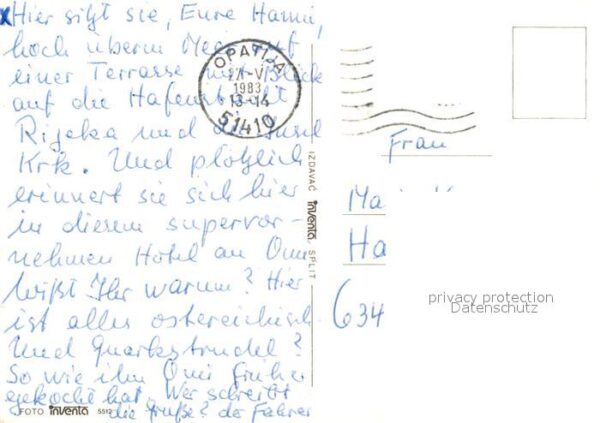 x Hier sitzt sie, Eure Hanni,
hoch überm Meer auf
einer Terrasse mit Blick
auf die Hafenstadt
Rijeka und die Insel
Krk. Und plötzlich
erinnert sie sich hier
in diesem supervor-
nehmen Hotel an Omi
Wißt Ihr warum? Hier
ist alles östereichisch
Und Quarkstrudel?
So wie ihn Omi früher
gekocht hat. Wer schreibt
die Grüße? der Fahrer
FOTO inventa 5512
OPATIJA
1983
13-14
51410
IZDAVAČ inventa SPLIT
Frau
Ma
Ha
634
privacy protection
Datenschutz